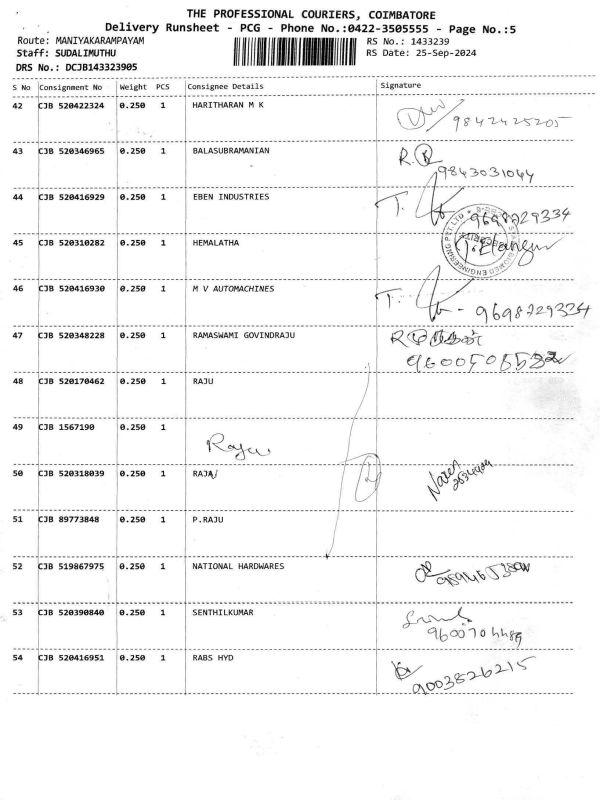 THE PROFESSIONAL COURIERS, COIMBATORE
Delivery Runsheet - PCG - Phone No.:0422-3505555 - Page No.:5
Route: MANIYAKARAMPAYAM RS No.: 1433239
Staff: SUDALIMUTHU RS Date: 25-Sep-2024
DRS No.: DCJB143323905
S No Consignment No Weight PCS Consignee Details Signature
42 CJB 520422324 0.250 1 HARITHARAN M K
9842425205
43 CJB 520346965 0.250 1 BALASUBRAMANIAN R.
9843031044
44 CJB 520416929 0.250 1 EBEN INDUSTRIES T.
9698729334
45 CJB 520310282 0.250 1 HEMALATHA
46 CJB 520416930 0.250 1 M V AUTOMACHINES T.
- 9698729334
47 CJB 520348228 0.250 1 RAMASWAMI GOVINDRAJU
48 CJB 520170462 0.250 1 RAJU
49 CJB 1567190 0.250 1
Raju
50 CJB 520318039 0.250 1 RAJAJ
51 CJB 89773848 0.250 1 P.RAJU
52 CJB 519867975 0.250 1 NATIONAL HARDWARES
53 CJB 520390840 0.250 1 SENTHILKUMAR
54 CJB 520416951 0.250 1 RABS HYD
9003826215